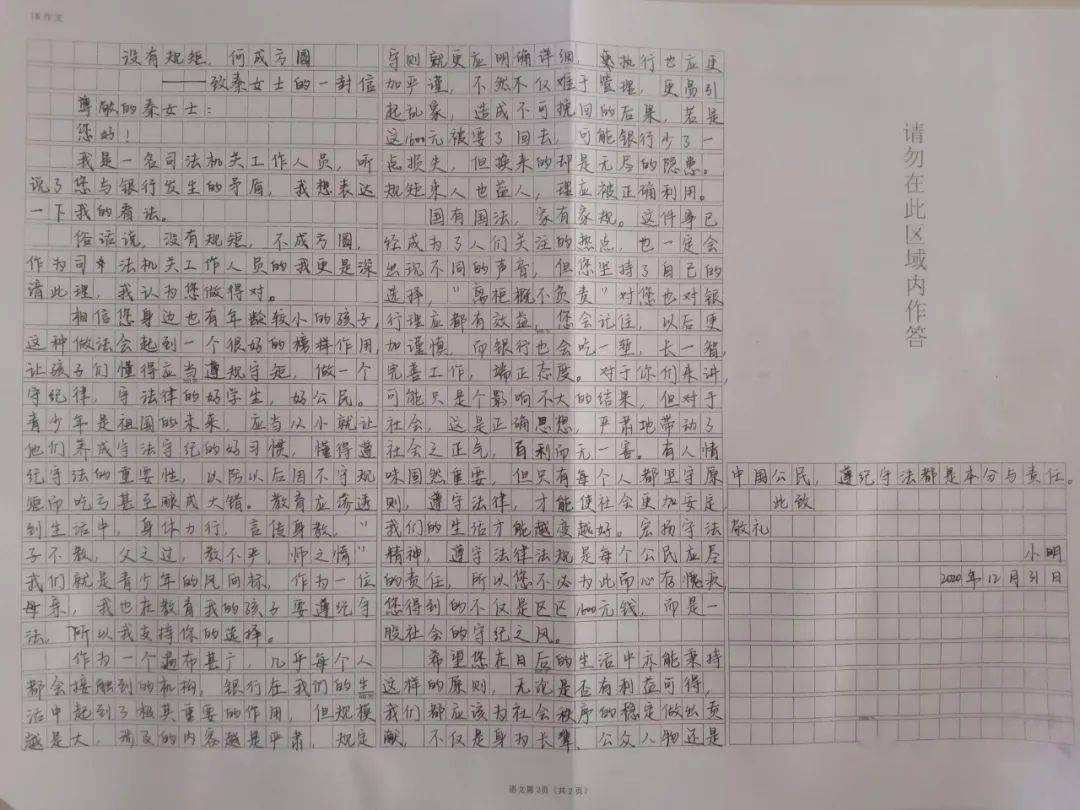 18 作文
没有规矩，何成方圆
——致秦女士的一封信
尊敬的秦女士：
您好！
我是一名司法机关工作人员，听
说了您与银行发生的矛盾，我想表达
一下我的看法。
俗话说，没有规矩，不成方圆，
作为司法机关工作人员的我更是深
谙此理，我认为您做得对。
相信您身边也有年龄较小的孩子，
这种做法会起到一个很好的榜样作用，
让孩子们懂得应当遵规守矩，做一个
守纪律，守法律的好学生，好公民。
青少年是祖国的未来，应当从小就让
他们养成守法守纪的好习惯，懂得遵
纪守法的重要性，以防以后因不守规
矩而吃亏甚至酿成大错。教育应渗透
到生活中，身体力行，言传身教，“
子不教，父之过，教不严，师之惰”
我们就是青少年的风向标，作为一位
母亲，我也在教育我的孩子要遵纪守
法，所以我支持你的选择。
作为一个遍布甚广，几乎每个人
都会接触到的机构，银行在我们的生
活中起到了极其重要的作用，但规模
越是大，涉及的内容越是严肃，规定
守则就更应明确详细，执行也应更
加严谨，不然不仅难于管理，更易引
起乱象，造成不可挽回的后果，若是
这1600元被要了回去，可能银行少了一
点损失，但换来的却是无尽的隐患。
规矩束人也益人，理应被正确利用。
国有国法，家有家规。这件事已
经成为了人们关注的热点，也一定会
出现不同的声音，但您坚持了自己的
选择，“离柜概不负责”对您也对银
行理应都有效益，您会记住，以后更
加谨慎，而银行也会吃一堑，长一智，
完善工作，端正态度。对于你们来讲，
可能只是个影响不大的结果，但对于
社会，这是正确思想，严肃地带动了
社会之正气，百利而无一害。有人情
味固然重要，但只有每个人都坚守原
则，遵守法律，才能使社会更加安定，
我们的生活才能越变越好。宏扬守法
精神，遵守法律法规是每个公民应尽
的责任，所以您不必为此而心存愧疚，
您得到的不仅是区区1600元钱，而是一
股社会的守纪之风。
希望您在日后的生活中亦能秉持
这样的原则，无论是否有利益可得，
我们都应该为社会秩序的稳定做出贡
献，不仅是身为长辈、公众人物还是
中国公民，遵纪守法都是本分与责任。
此致
敬礼
小明
2020年12月31日
请勿在此区域内作答
语文第2页（共2页）